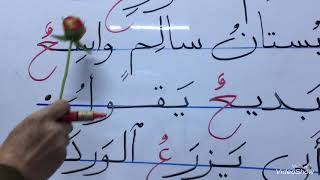 بُسْتانُ سالِمٍ واسِعٌ
بَديعٌ يَقولُ:
أَبي يَزرَعُ الوَرْدَ
VideoShow